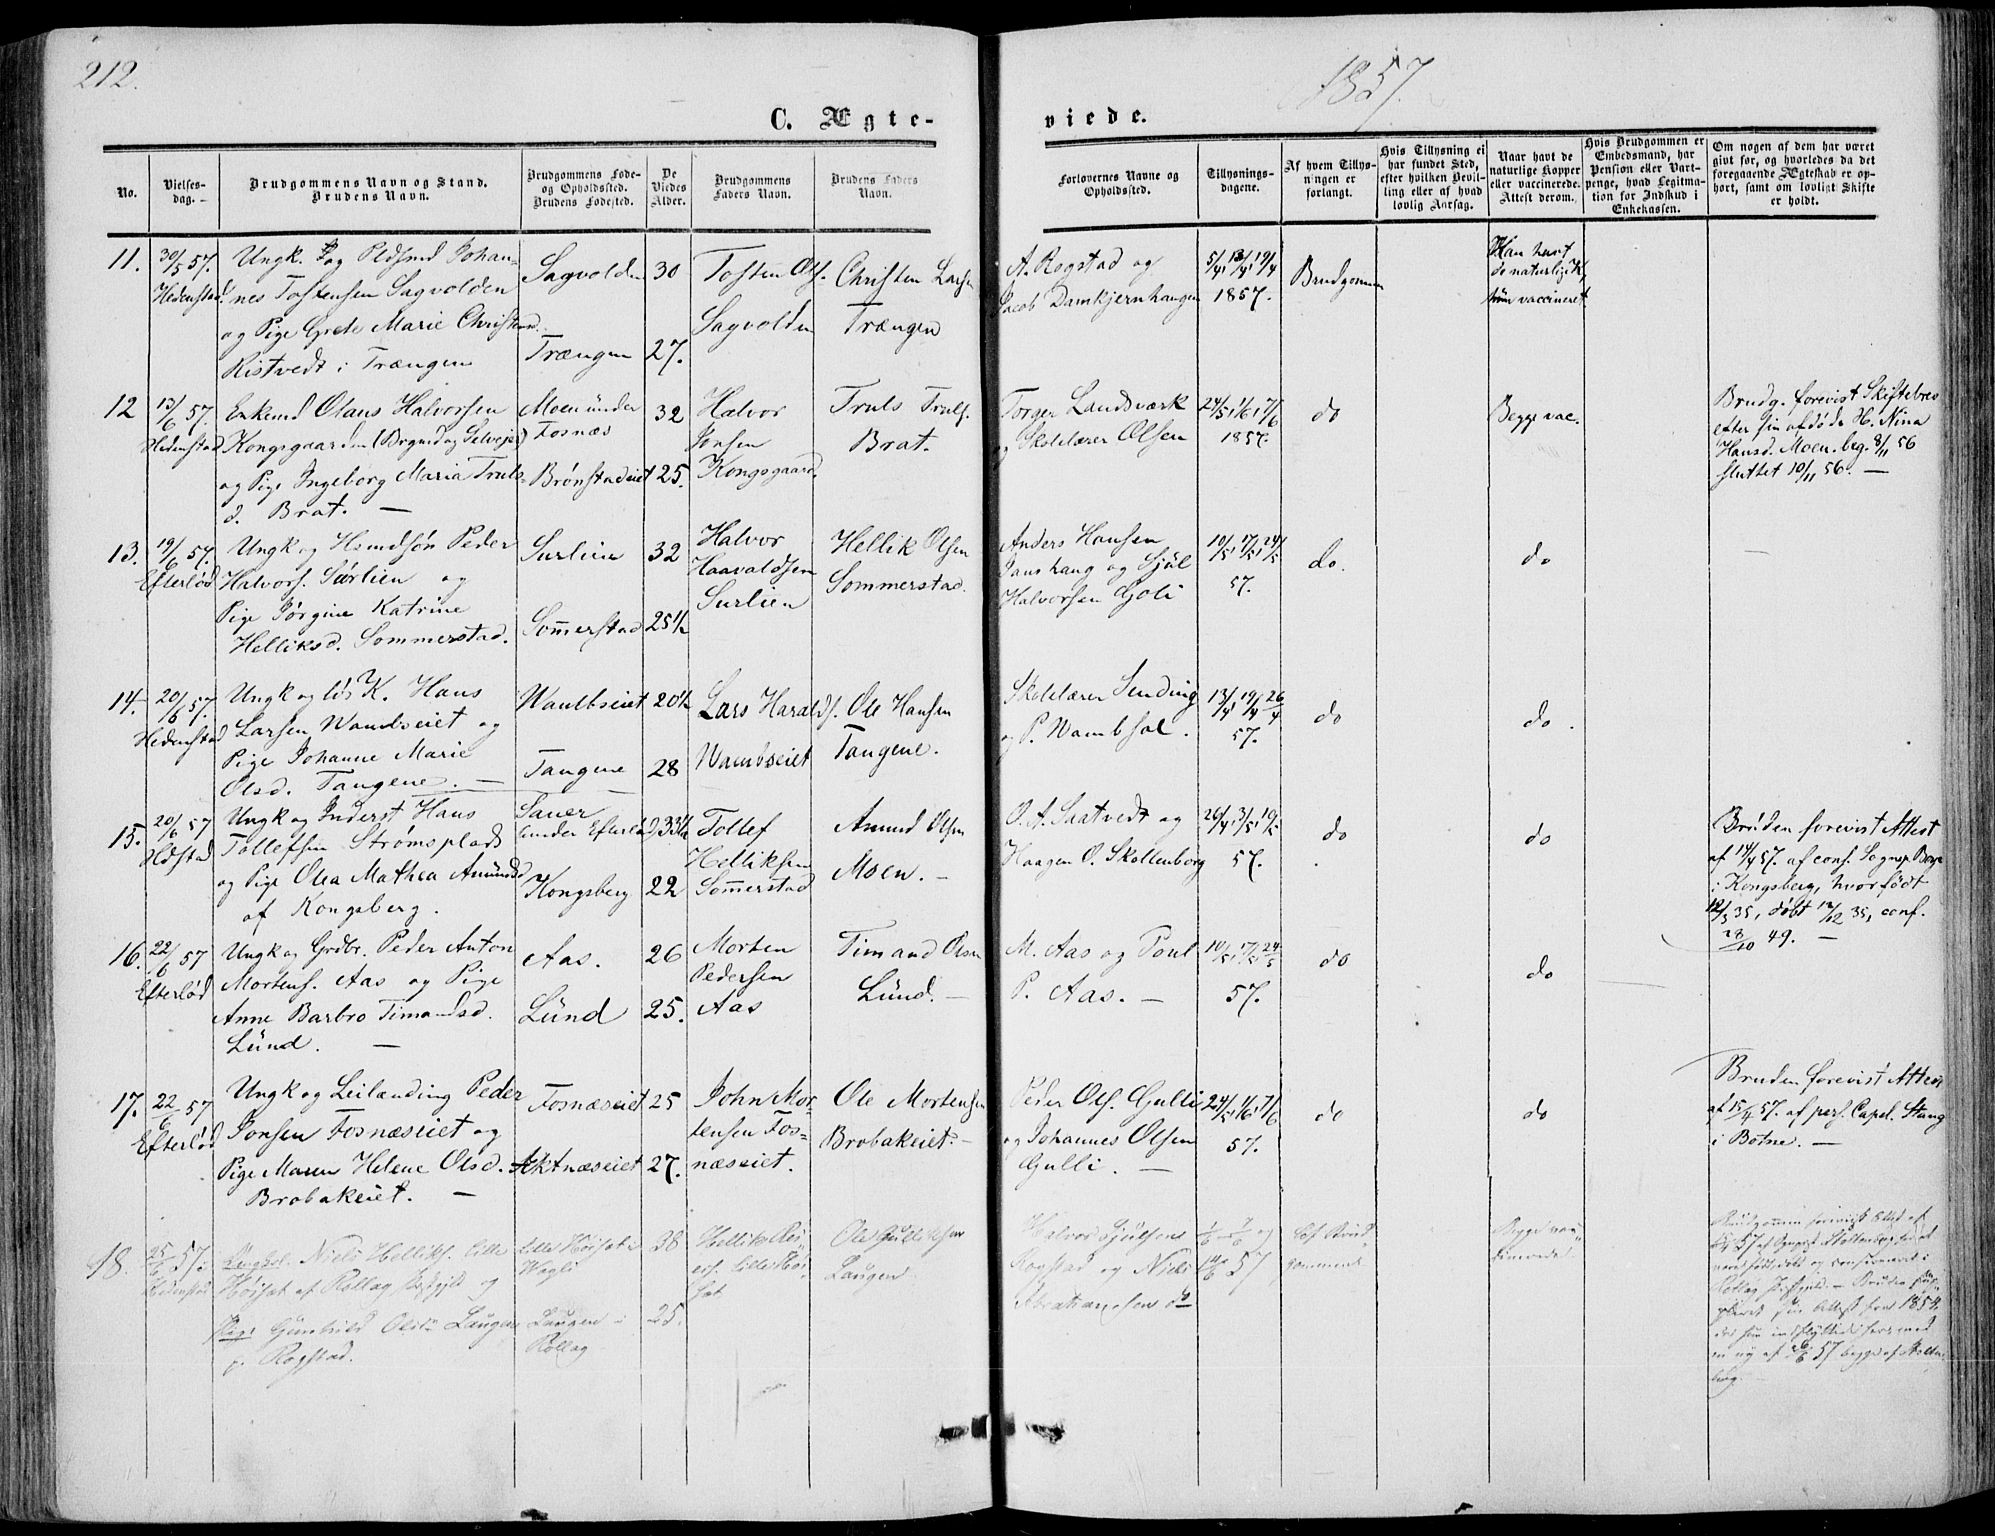 212.
1857.
C. Ægte-
viede.
No.
Vielses-
dag.
Brudgommens Navn og Stand.
Brudens Navn.
Brudgommens Føde-
og Opholdssted.
Brudens Fødested.
De
Viedes
Alder.
Brudgommens
Faders Navn.
Brudens Faders
Navn.
Forlovernes Navne og
Opholdssted.
Tillysnings-
dagene.
Af hvem Tillys-
ningen er
forlangt.
Hvis Tillysning ei
har fundet Sted,
efter hvilken Bevil-
ling eller af hvad
lovlig Aarsag.
Naar havt de
naturlige Kopper
eller vaccinerede.
Attest derom.
Hvis Brudgommen er
Embedsmand, har
Pension eller Vart-
penge, hvad Legitima-
tion for Indskud i
Enkekassen.
Om nogen af dem har været
gift før, og hvorledes da det
foregaaende Ægteskab er op-
hørt, samt om lovligt Skifte
er holdt.
11.
30/5 57.
Hedenstad
Ungk. og Pldsmd Johan-
nes Tostensen Sagvolden
og Pige Grete Marie Christensd.
Ristvedt i Trængen
Sagvolden
Trængen
30
27.
Tosten Ols.
Sagvolden
Christen Larsen
Trængen
A. Rogstad og
Jacob Damkjernhaugen
5/4, 13/4, 19/4
1857.
Brudgommen
Han havt
de naturlige K,
hun vaccineret
12
13/6 57.
Hedenstad
Enkemd Olaus Halvorsen
Kongsgaarden (Brgmd og Selveier)
og Pige Ingeborg Maria Truls-
d. Brat. —
Moen under
Fosnæs
Brønstadeiet
32
25.
Halvor
Jonsen
Kongsgaard.
Truls Truls.
Brat.
Torger Landsværk
og Skolelærer Olsen
24/5, 1/6, 7/6
1857.
do
Begge vac.
Brudg. forevist Skiftebrev
efter sin afdøde H. Nina
Hansd. Moen. beg. 8/11 56
sluttet 10/11 56. —
13.
19/6 57.
Efteløt
Ungk og Hsmdsøn Peder
Halvors. Surlien og
Pige Jørgine Katrine
Helliksd. Sommerstad.
Surlien
Sommerstad
32
25½
Halvor
Haavaldsen
Surlien
Hellik Olsen
Sommerstad.
Anders Hansen
Haug og Sjul
Halvorsen Goli
10/5, 17/5, 24/5
57.
do.
do
—
14.
20/6 57.
Hedenstad
Ungk og løs K. Hans
Larsen Wambseiet og
Pige Johanne Marie
Olsd. Tangene. —
Wambseiet
Tangene
20½
28
Lars Haralds.
Wambseiet
Ole Hansen
Tangene.
Skolelærer Sending
og P. Wambsal.
13/4, 19/4, 26/4
57.
do
do.
15.
20/6 57
Hdstad
Ungk og Inderst Hans
Tollefsen Strømsplads
og Pige Olea Mathea Amundsd
af Kongsberg.
Sauer
(under Efteløt)
Kongsberg
33½
22
Tollef
Helliksen
Sommerstad
Amund Olsen
Moen. —
O. A. Saatvedt og
Haagen O. Skollenborg
26/4, 3/5, 10/5
57.
do
do
Bruden forevist Attest
af 14/4 57. af conf. Sognepr
i Kongsberg, hvor født
12/3 35, døbt 12/12 35, conf.
28/10 49. —
16.
22/6 57
Efteløt
Ungk og Grdbr. Peder Anton
Mortens. Aas og Pige
Anne Barbro Timandsd.
Lund. —
Aas.
Lund
26
25.
Morten
Pedersen
Aas
Timand Olsen
Lund. —
M. Aas og Poul
P. Aas. —
10/5, 17/5, 24/5
57.
do
do
17.
22/6 57
Efteløt
Ungk og Leilænding Peder
Jonsen Fosnæseiet og
Pige Maren Helene Olsd.
Brobakeiet. —
Fosnæseiet
Aktnæseiet
25
27.
John Mor-
tensen Fos-
næseiet.
Ole Mortensen
Brobakeiet. —
Peder Ols. Gulli
og Johannes Olsen
Gulli. —
24/5, 1/6, 7/6
57.
do
do
Bruden forevist Attest
af 15/4 57. af pers. Capel. Stang
i Botne. —
18.
25/6 57.
Hedenstad
Ungkal. Niels Helliks. Lille
Høisæt af Rollag Præstgjeld og
Pige Gunhild Olsd Laugen
p. Rogstad.
Lille Høisæt i
Wegli
Laugen i
Rollag
38
25.
Hellik
Lille Høi-
sæt
Ole Gulliksen
Laugen
Halvor Sjulsens
Rogstad og Niels
Abrahamsen do
1/6 7/6 og
14/6 57
af Brud-
gommen
Begge vac-
cinerede
Brudgommen forevist Attest af
57 af Sognepr. Stoltenberg for at
være født, døbt og confirmeret i
Rollag Prstgjeld. — Bruden
sin Attest fra 1854,
da hun indflyttede hero med
en ny af 26/6 57 begge af Stolten-
berg.